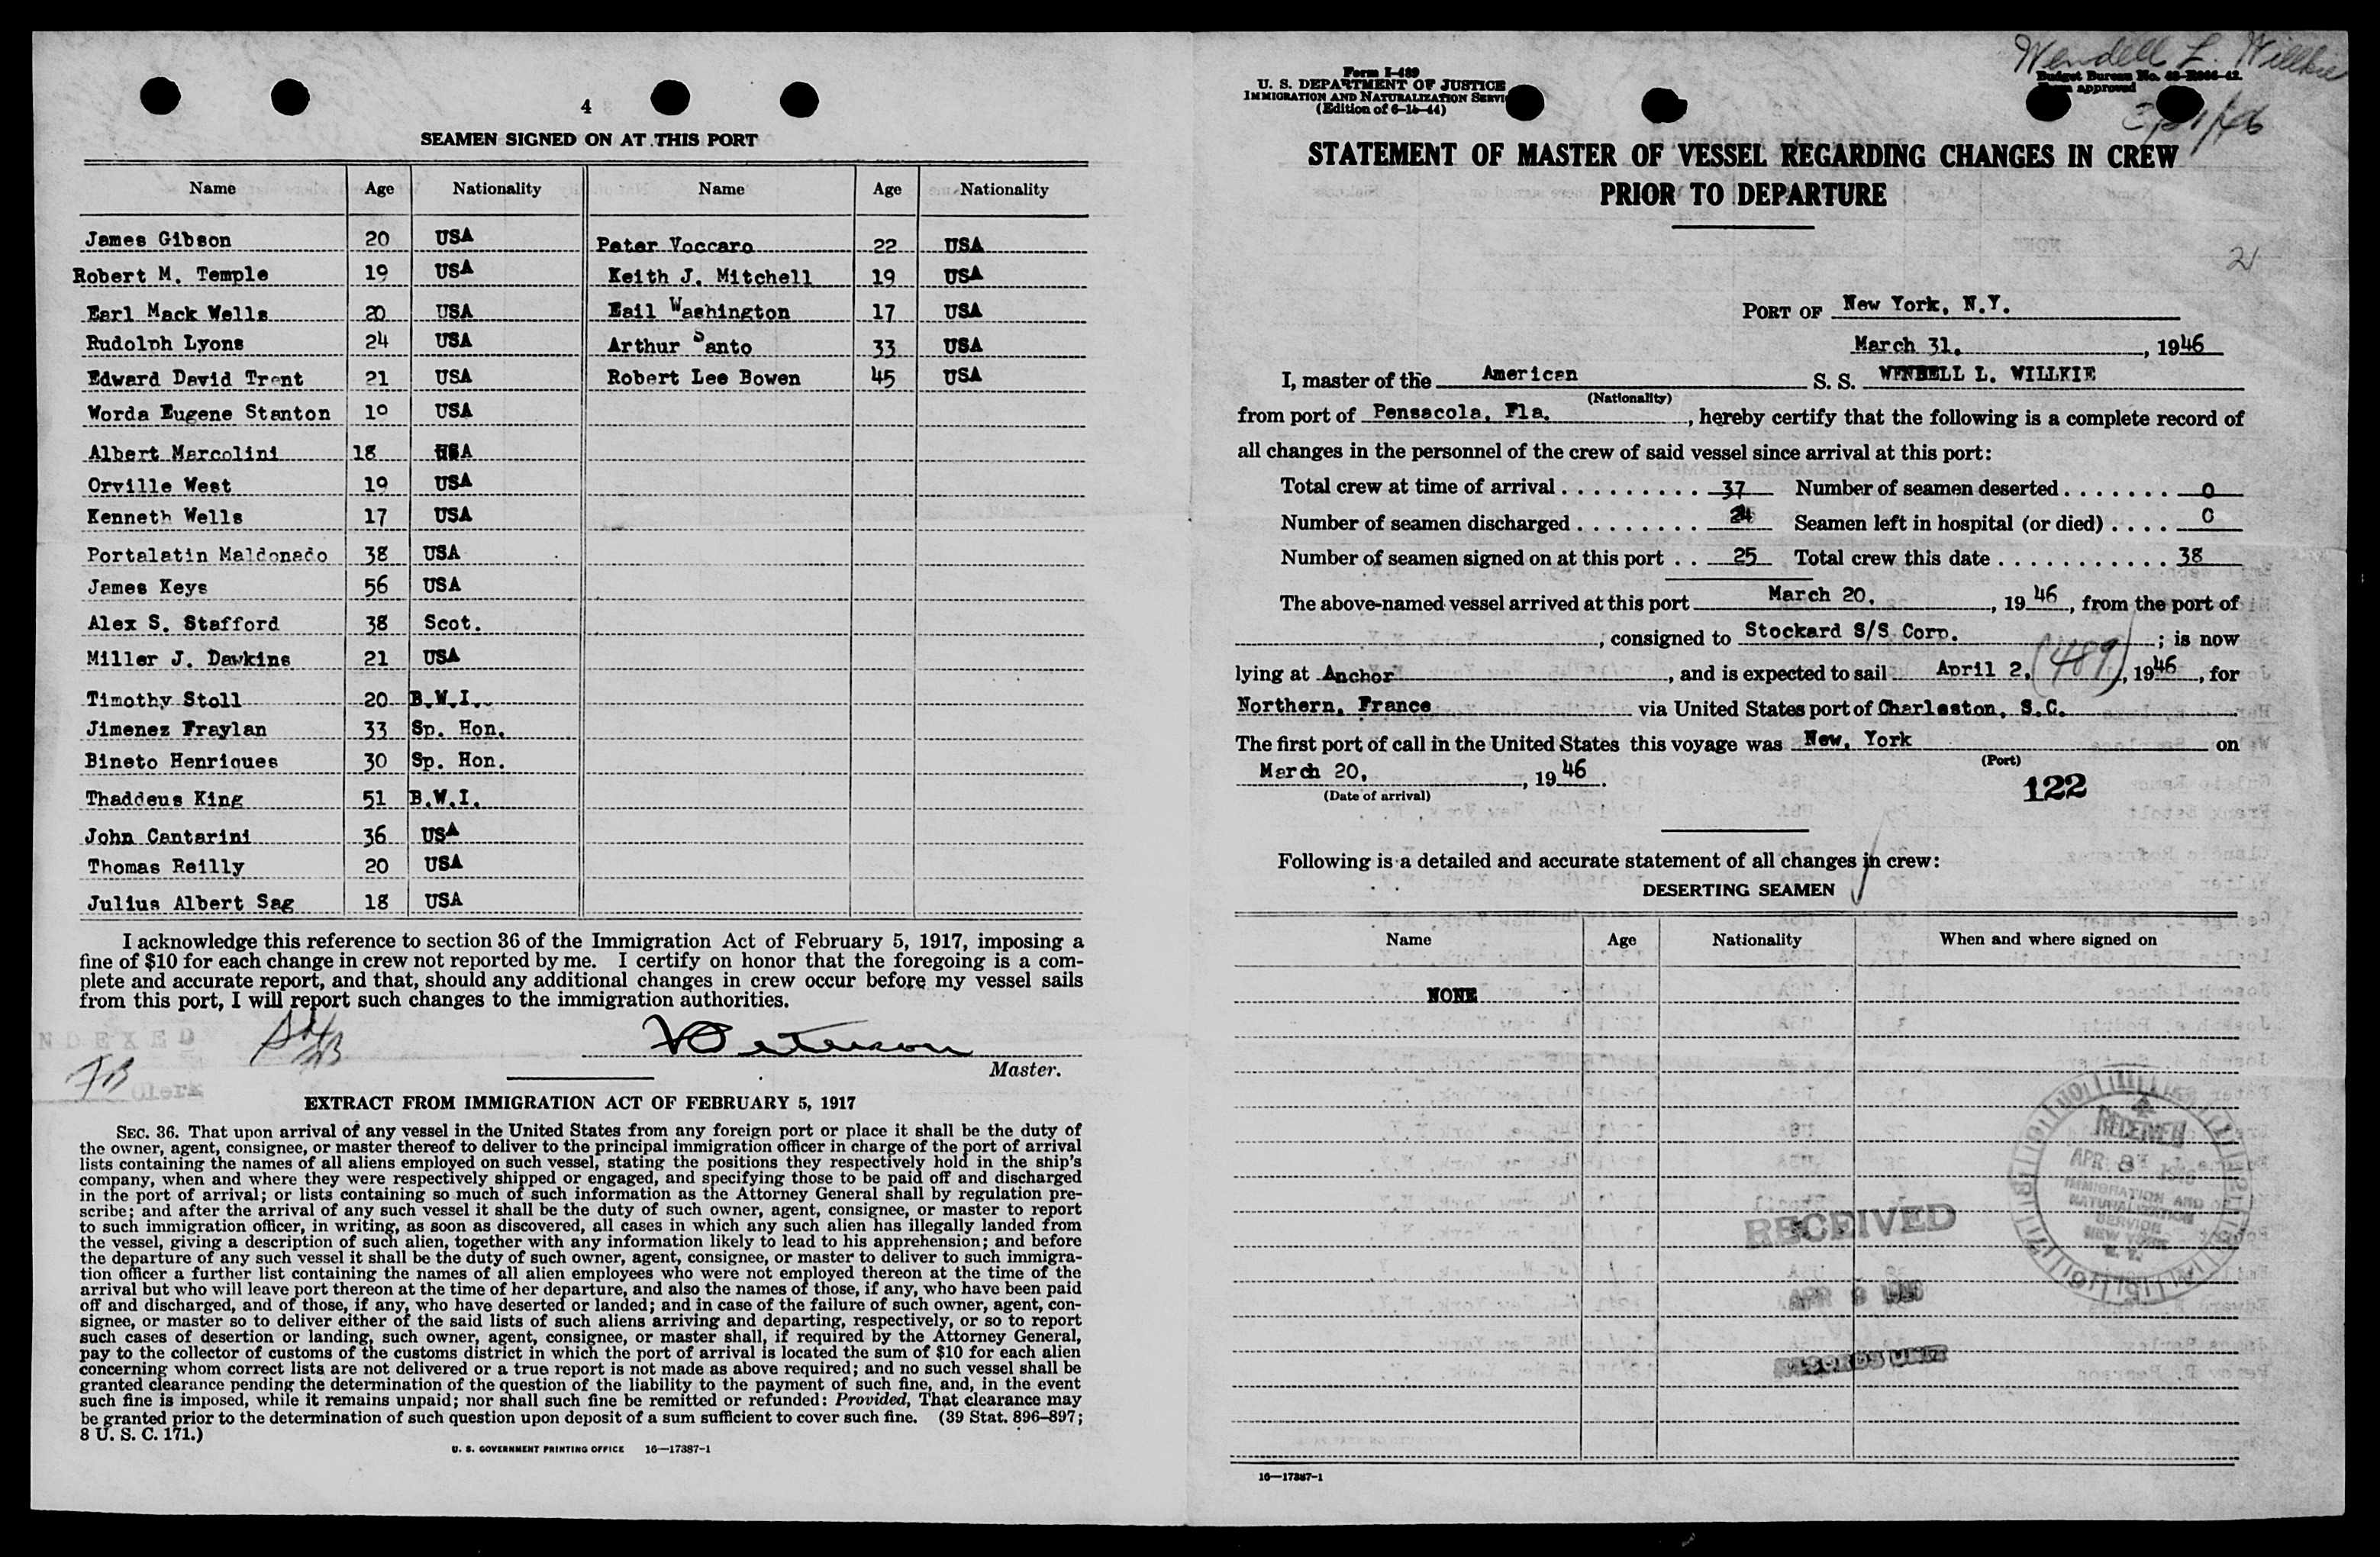 4
SEAMEN SIGNED ON AT THIS PORT
Name Age Nationality Name Age Nationality
James Gibson 20 USA Peter Voccaro 22 USA
Robert M. Temple 19 USA Keith J. Mitchell 19 USA
Earl Mack Wells 20 USA Eail Washington 17 USA
Rudolph Lyons 24 USA Arthur Santo 33 USA
Edward David Trent 21 USA Robert Lee Bowen 45 USA
Worda Eugene Stanton USA
Albert Marcolini 18 USA
Orville West 19 USA
Kenneth Wells 17 USA
Portalatin Maldonado 38 USA
James Keys 56 USA
Alex S. Stafford 38 Scot.
Miller J. Dawkins 21 USA
Timothy Stoll 20 B.W.I.
Jimenez Fraylan 33 Sp. Hon.
Bineto Henriques 30 Sp. Hon.
Thaddeus King 51 B.W.I.
John Cantarini 36 USA
Thomas Reilly 20 USA
Julius Albert Sag 18 USA
I acknowledge this reference to section 36 of the Immigration Act of February 5, 1917, imposing a
fine of $10 for each change in crew not reported by me. I certify on honor that the foregoing is a com-
plete and accurate report, and that, should any additional changes in crew occur before my vessel sails
from this port, I will report such changes to the immigration authorities.
INDEXED
Peterson
Master.
FB
Clerk
EXTRACT FROM IMMIGRATION ACT OF FEBRUARY 5, 1917
SEC. 36. That upon arrival of any vessel in the United States from any foreign port or place it shall be the duty of
the owner, agent, consignee, or master thereof to deliver to the principal immigration officer in charge of the port of arrival
lists containing the names of all aliens employed on such vessel, stating the positions they respectively hold in the ship's
company, when and where they were respectively shipped or engaged, and specifying those to be paid off and discharged
in the port of arrival; or lists containing so much of such information as the Attorney General shall by regulation pre-
scribe; and after the arrival of any such vessel it shall be the duty of such owner, agent, consignee, or master to report
to such immigration officer, in writing, as soon as discovered, all cases in which any such alien has illegally landed from
the vessel, giving a description of such alien, together with any information likely to lead to his apprehension; and before
the departure of any such vessel it shall be the duty of such owner, agent, consignee, or master to deliver to such immigra-
tion officer a further list containing the names of all alien employees who were not employed thereon at the time of the
arrival but who will leave port thereon at the time of her departure, and also the names of those, if any, who have been paid
off and discharged, and of those, if any, who have deserted or landed; and in case of the failure of such owner, agent, con-
signee, or master so to deliver either of the said lists of such aliens arriving and departing, respectively, or so to report
such cases of desertion or landing, such owner, agent, consignee, or master shall, if required by the Attorney General,
pay to the collector of customs of the customs district in which the port of arrival is located the sum of $10 for each alien
concerning whom correct lists are not delivered or a true report is not made as above required; and no such vessel shall be
granted clearance pending the determination of the question of the liability to the payment of such fine, and, in the event
such fine is imposed, while it remains unpaid; nor shall such fine be remitted or refunded: Provided, That clearance may
be granted prior to the determination of such question upon deposit of a sum sufficient to cover such fine. (39 Stat. 896–897;
8 U. S. C. 171.)
U. S. GOVERNMENT PRINTING OFFICE 16—17387-1
Wendell L. Willkie
Form I-489
U. S. DEPARTMENT OF JUSTICE
IMMIGRATION AND NATURALIZATION SERVI
(Edition of 6-15-44)
Budget Bureau No.
approved
STATEMENT OF MASTER OF VESSEL REGARDING CHANGES IN CREW
PRIOR TO DEPARTURE
21
PORT OF New York, N.Y.
March 31, , 1946
I, master of the American S. S. WENDELL L. WILLKIE
(Nationality)
from port of Pensacola, Fla. , hereby certify that the following is a complete record of
all changes in the personnel of the crew of said vessel since arrival at this port:
Total crew at time of arrival . . . . . . . . . . 37 Number of seamen deserted . . . . . . . 0
Number of seamen discharged . . . . . . . . 24 Seamen left in hospital (or died) . . . . 0
Number of seamen signed on at this port . . 25 Total crew this date . . . . . . . . . . . . 38
The above-named vessel arrived at this port March 20, , 19 46 , from the port of
, consigned to Stockard S/S Corp. ; is now
lying at Anchor , and is expected to sail April 2, (489) , 1946 , for
Northern, France via United States port of Charleston, S.C.
The first port of call in the United States this voyage was New, York on
(Port)
March 20, , 19 46 .
(Date of arrival)
122
Following is a detailed and accurate statement of all changes in crew:
DESERTING SEAMEN
Name Age Nationality When and where signed on
NONE
RECEIVED
APR 8 1946
IMMIGRATION AND
NATURALIZATION
SERVICE
NEW YORK
N. Y.
RECEIVED
APR 9 1946
RECORDS UNIT
16—17387-1